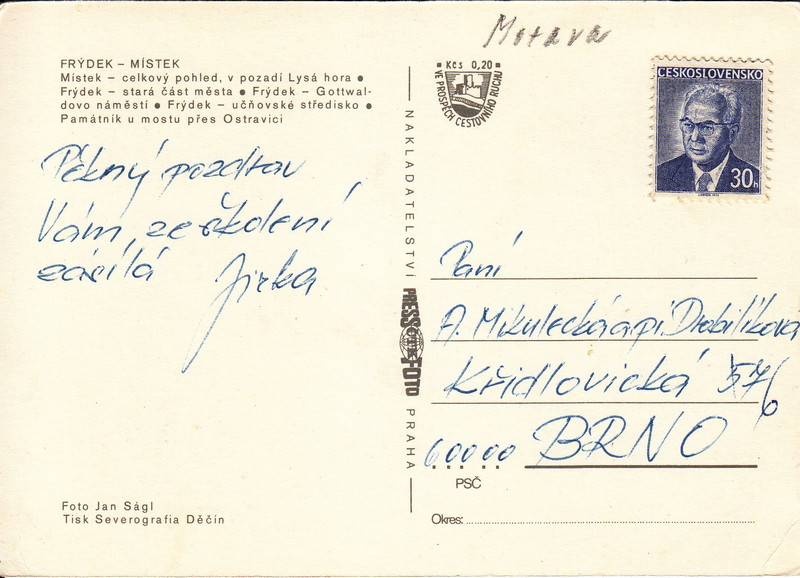 Morava
FRÝDEK – MÍSTEK
Místek – celkový pohled, v pozadí Lysá hora ●
Frýdek – stará část města ● Frýdek – Gottwal-
dovo náměstí ● Frýdek – učňovské středisko ●
Památník u mostu přes Ostravici
Kčs 0,20
VE PROSPĚCH CESTOVNÍHO RUCHU
ČESKOSLOVENSKO
30h
Pěkný pozdrav
Vám, ze školení
zasílá Jirka
NAKLADATELSTVÍ
PRESSFOTO
PRAHA
Paní
A. Mikulecká a pí Drobilíková
Křídlovická 57/6
60000 BRNO
PSČ
Okres:
Foto Jan Ságl
Tisk Severografia Děčín